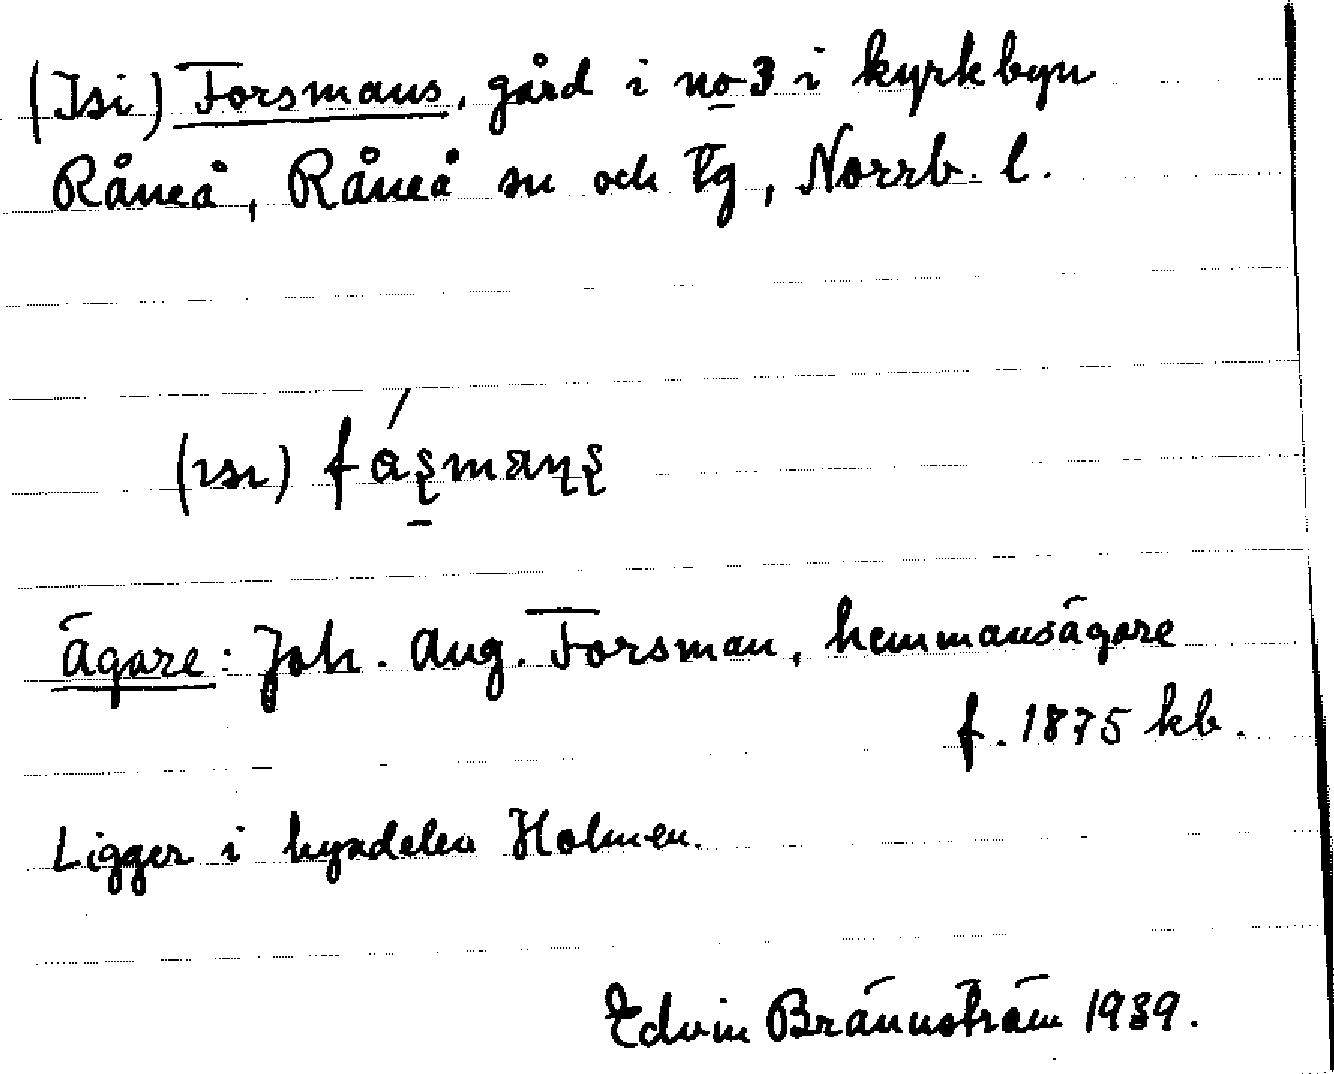 (Isi) Forsmans, gård i no 3 i kyrkbyn
Råneå, Råneå sn och tg, Norrb. l.
(ısı) fása̱manş
ägare: Joh. Aug. Forsman, hemmansägare
f. 1875 kb.
Ligger i byadelen Holmen.
Edvin Brännström 1939.